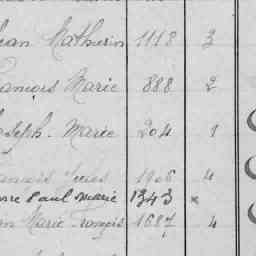 ean Mathurin 1118 3
rançois Marie 888 2
oseph Marie 204 1
rançois 1906 4
erre Paul Marie 1343 x
an Marie François 1687 4